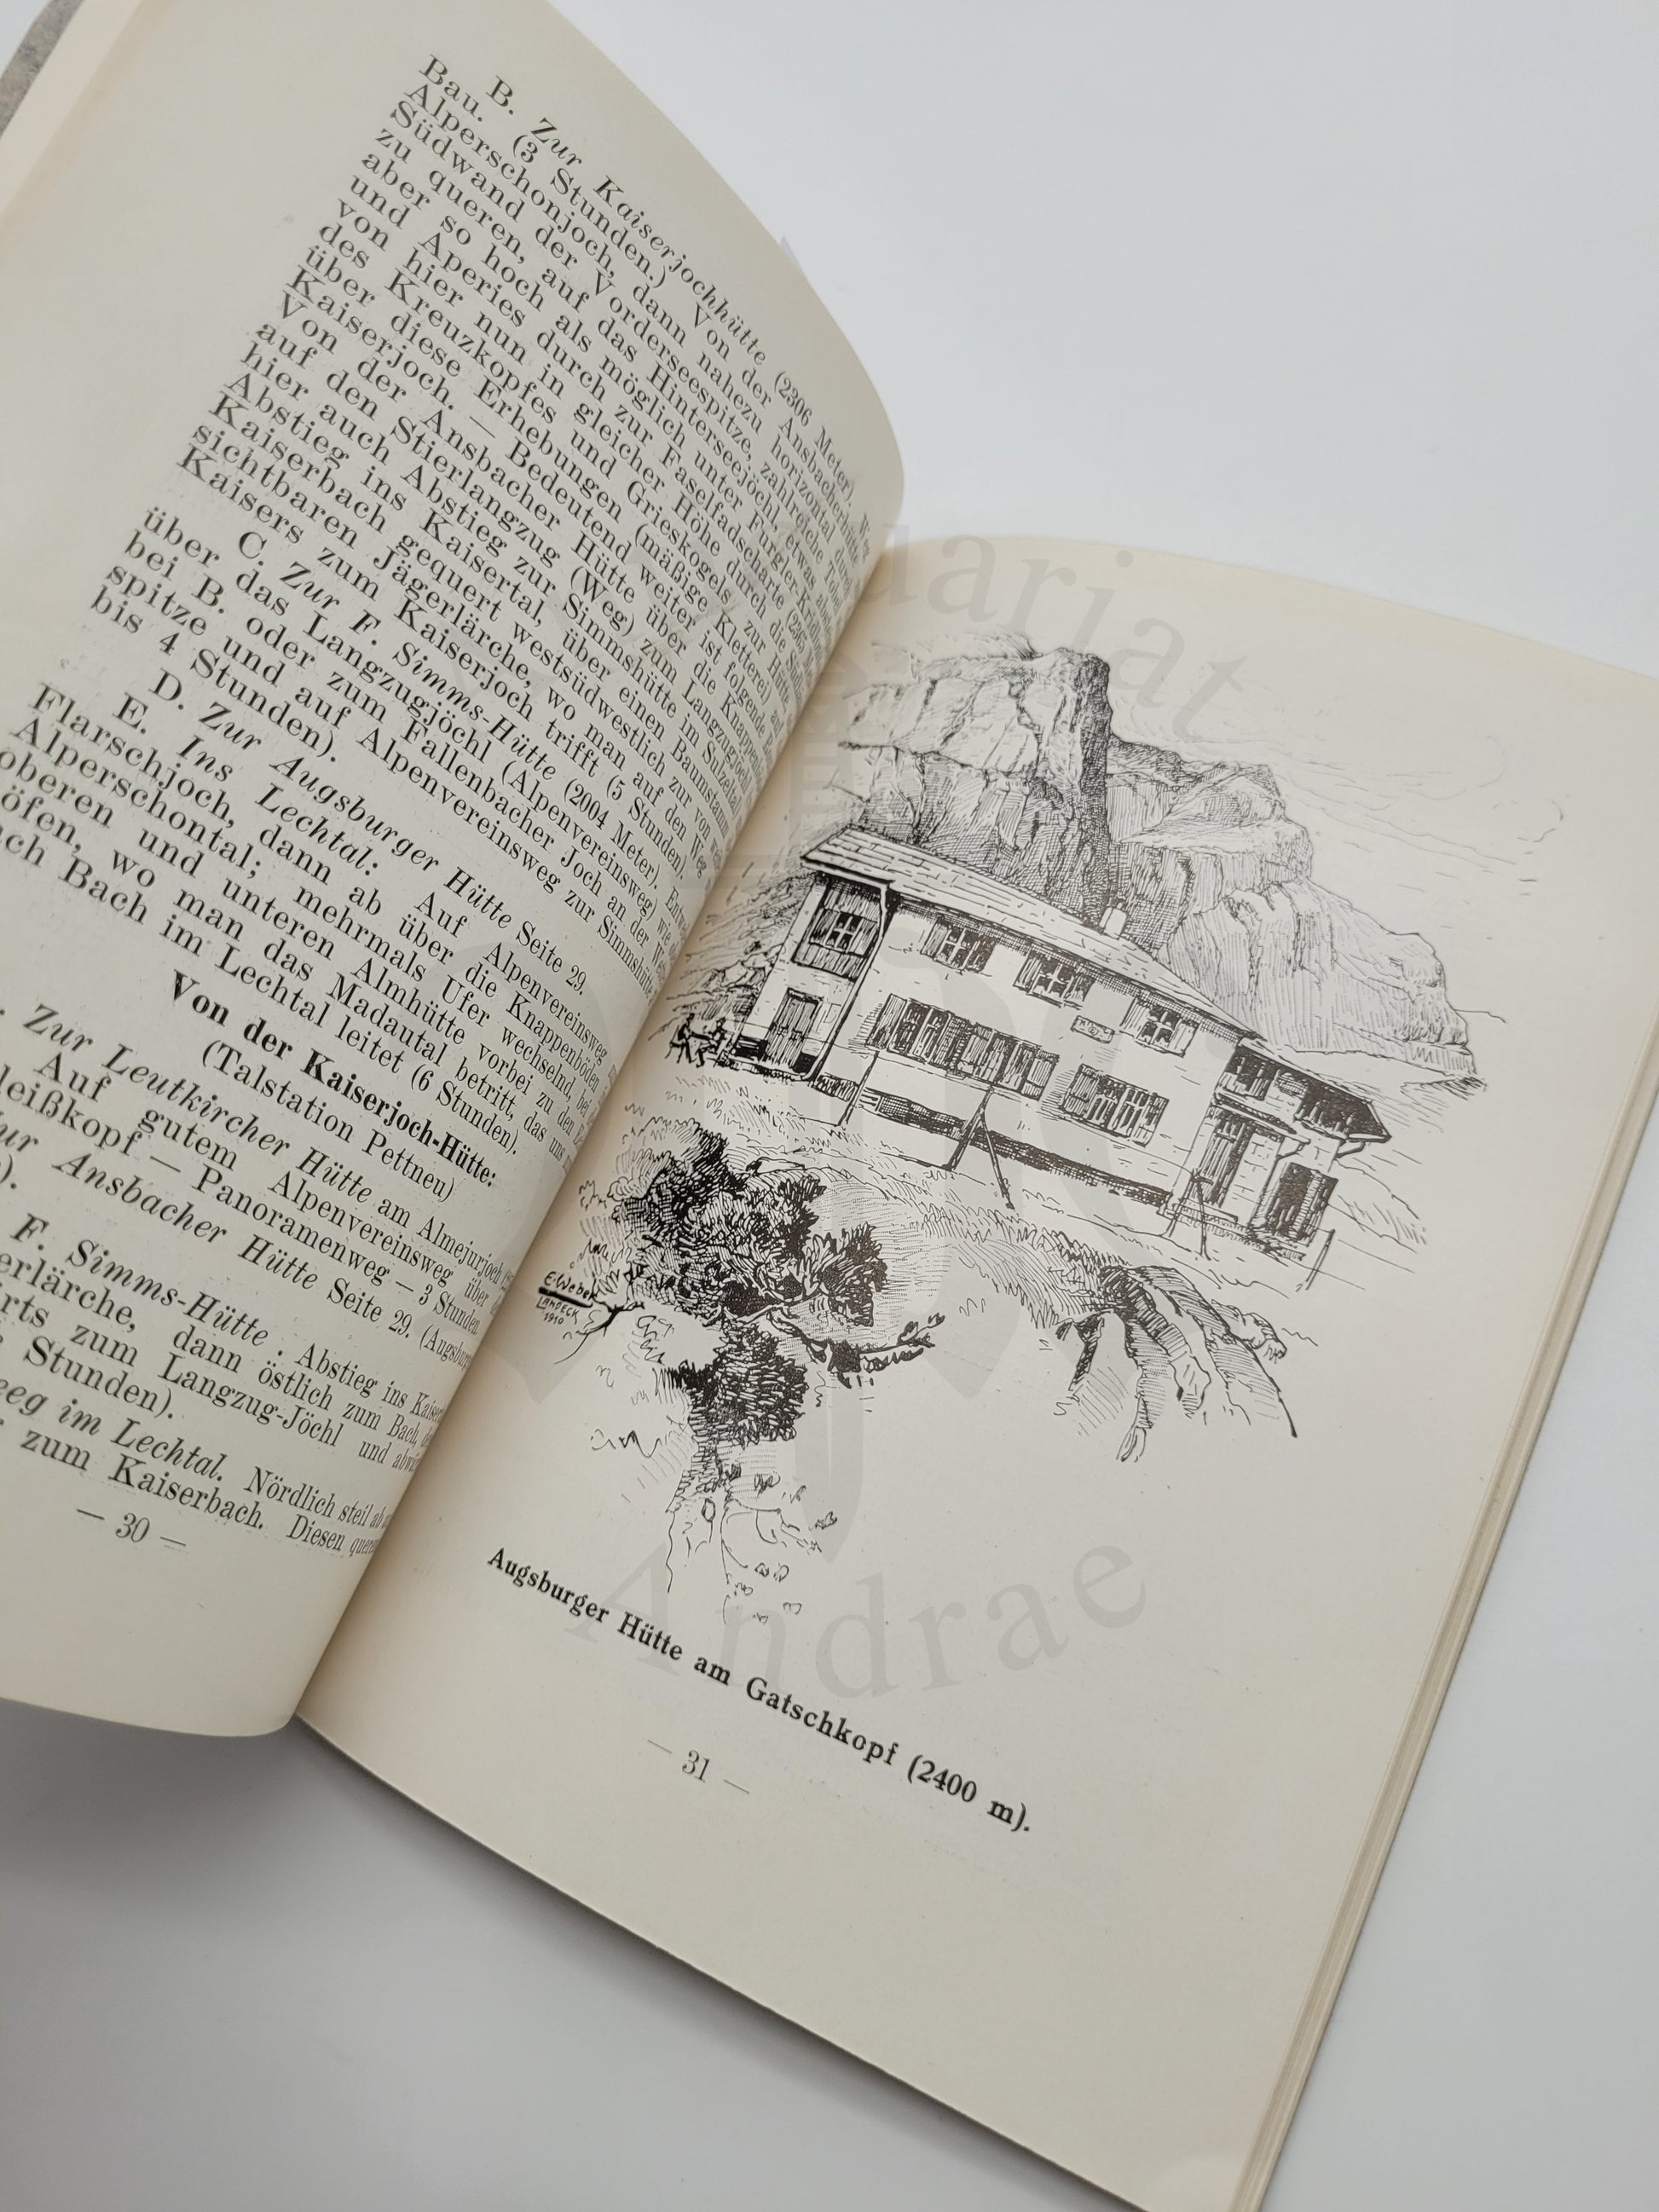 B. Zur Kaiserjochhütte (2306 Meter).
Bau. (3 Stunden.) Von der Ansbacherhütte
Alperschonjoch, dann nahezu horizontal durch
Südwand der Vorderseespitze, zahlreiche
zu queren, auf das Hinterseejöchl, etwas
aber so hoch als möglich unter Furgler-
und Aperies durch zur Faselfadscharte (2365
von hier nun in gleicher Höhe durch die
des Kreuzkopfes und Grieskogels zur Hütte
über diese Erhebungen (mäßige Kletterei)
Kaiserjoch. — Bedeutend weiter ist folgende
Von der Ansbacher Hütte über die
auf den Stierlangzug (Weg) zum Langzugjoch
hier auch Abstieg zur Simmshütte im Sulzeltal
Abstieg ins Kaisertal, über einen Baumstamm
Kaiserbach gequert westsüdwestlich zur von
sichtbaren Jägerlärche, wo man auf den Weg
Kaisers zum Kaiserjoch trifft (5 Stunden).
C. Zur F. Simms-Hütte (2004 Meter).
über das Langzugjöchl (Alpenvereinsweg) wie
bei B. oder zum Fallenbacher Joch an der
spitze und auf Alpenvereinsweg zur Simmshütte
bis 4 Stunden).
D. Zur Augsburger Hütte Seite 29.
E. Ins Lechtal: Auf Alpenvereinsweg
Flarschjoch, dann ab über die Knappenböden
Alperschontal; mehrmals Ufer wechselnd, bei
oberen und unteren Almhütte vorbei zu den
öfen, wo man das Madautal betritt, das uns
nach Bach im Lechtal leitet (6 Stunden).
Von der Kaiserjoch-Hütte:
(Talstation Pettneu)
Zur Leutkircher Hütte am Almejurjoch
Auf gutem Alpenvereinsweg über
— Panoramenweg — 3 Stunden.
Ansbacher Hütte Seite 29. (Augsburger
F. Simms-Hütte. Abstieg ins
dann östlich zum Bach,
zum Langzug-Jöchl und
Stunden).
im Lechtal. Nördlich steil ab
zum Kaiserbach. Diesen
— 30 —
E. Weber
LANDECK
1910
Augsburger Hütte am Gatschkopf (2400 m).
— 31 —
Andrae